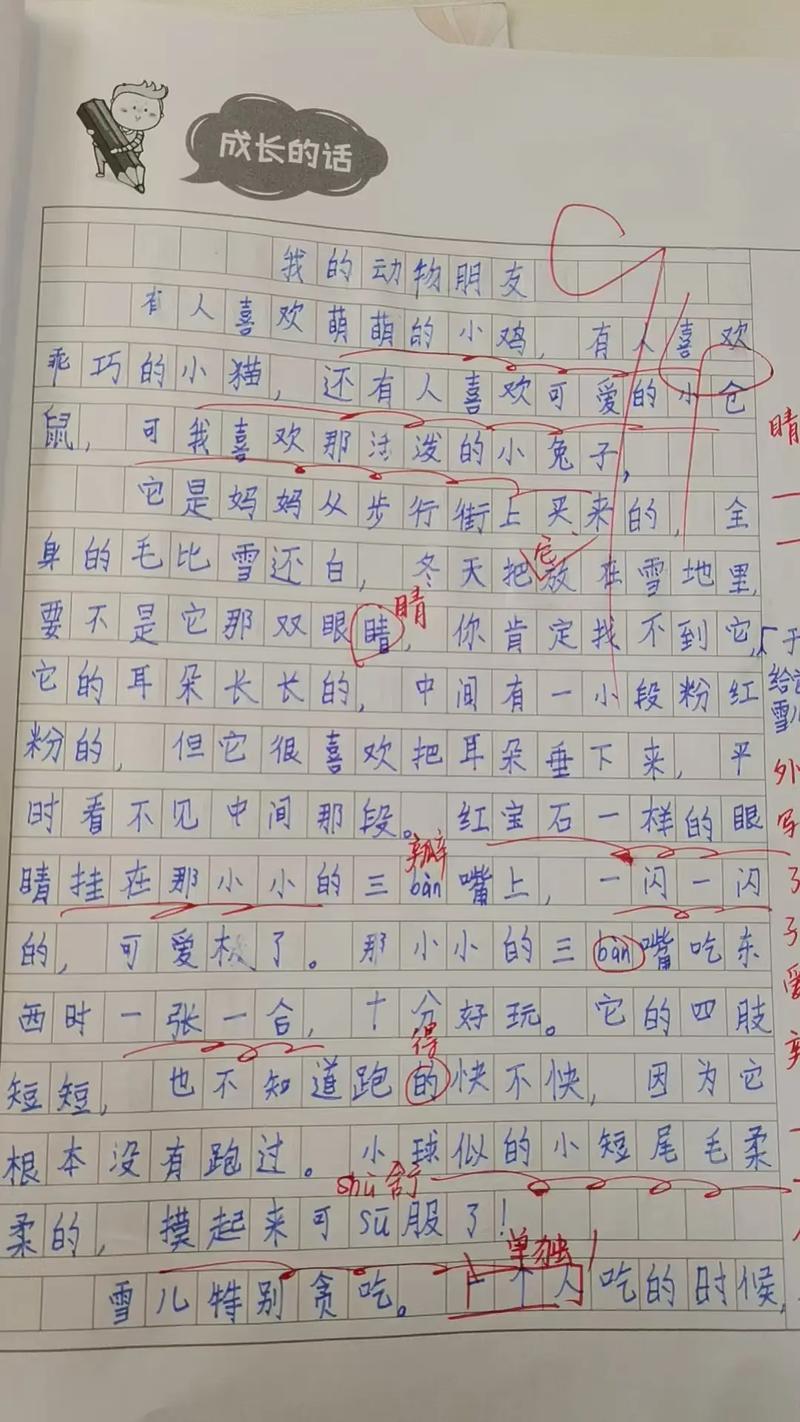 成长的话
我的动物朋友
有人喜欢萌萌的小鸡，有人喜欢
乖巧的小猫，还有人喜欢可爱的小仓
鼠，可我喜欢那活泼的小兔子，
它是妈妈从步行街上买来的，全
它
身的毛比雪还白，冬天把放在雪地里，
睛
要不是它那双眼睛，你肯定找不到它，
它的耳朵长长的，中间有一小段粉红
粉的，但它很喜欢把耳朵垂下来，平
时看不见中间那段。红宝石一样的眼
瓣
睛挂在那小小的三bàn嘴上，一闪一闪
的，可爱极了。那小小的三bàn嘴吃东
西时一张一合，十分好玩。它的四肢
得
短短，也不知道跑的快不快，因为它
根本没有跑过。小球似的小短尾毛柔
shū 舒
柔的，摸起来可sū服了！
单独
雪儿特别贪吃。一个人吃的时候，
睛
给
雪儿
外
写